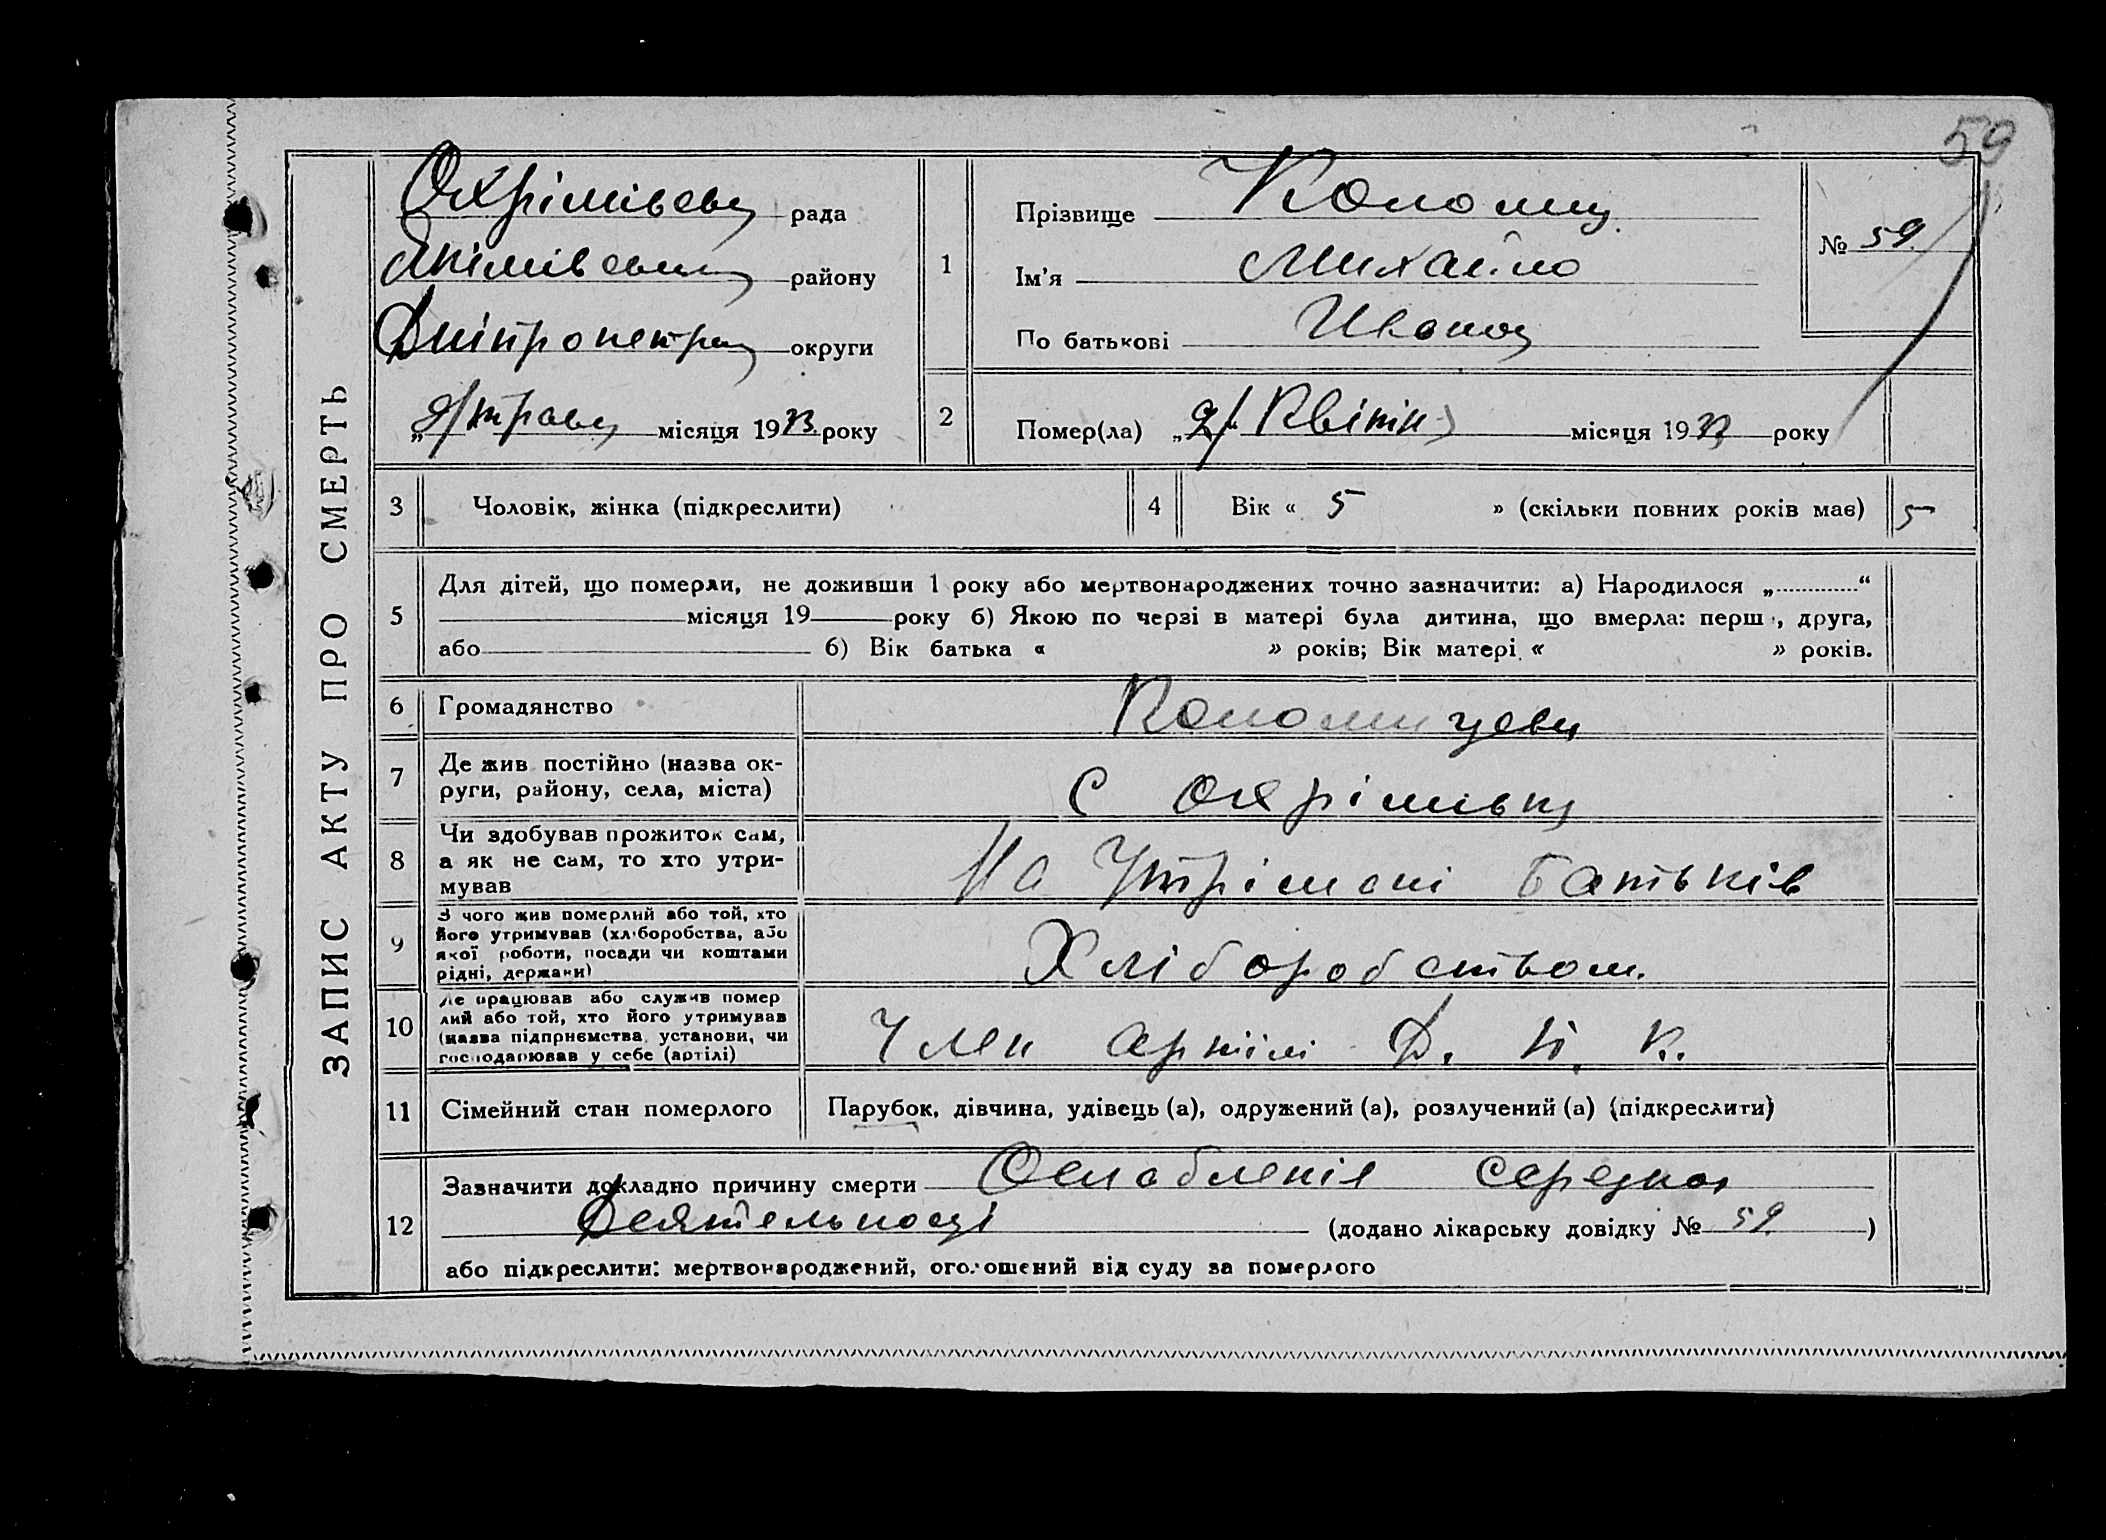 59
ЗАПИС АКТУ ПРО СМЕРТЬ
Охрімівськ рада
Якімівськ району
Дніпропетр округи
„ травн місяця 1933 року
1 Прізвище Коломиц
Ім'я Михайло
По батькові Иванов
№ 59
2 Помер(ла) „ Квітн місяця 1933 року
3 Чоловік, жінка (підкреслити)
4 Вік « 5 » (скільки повних років має) 5
5 Для дітей, що померли, не доживши 1 року або мертвонароджених точно зазначити: а) Народилося „ “
місяця 19 року б) Якою по черзі в матері була дитина, що вмерла: перш , друга,
або б) Вік батька « » років; Вік матері « » років.
6 Громадянство
7 Де жив постійно (назва ок-
руги, району, села, міста) С Охрімівк
8 Чи здобував прожиток сам,
а як не сам, то хто утри-
мував На Утрімані Батьків
9 З чого жив померлий або той, хто
його утримував (хліборобства, або
якої роботи, посади чи коштами
рідні, держави) Хліборобством.
10 Де працював або служив помер
лий або той, хто його утримував
(назва підприємства, установи, чи
господарював у себе (артілі) Член артілі Д. Н. К.
11 Сімейний стан померлого Парубок, дівчина, удівець (а), одружений (а), розлучений (а) (підкреслити)
12 Зазначити докладно причину смерти Ослабленія сердцной
Деятельносці (додано лікарську довідку № 59 )
або підкреслити: мертвонароджений, оголошений від суду за померлого